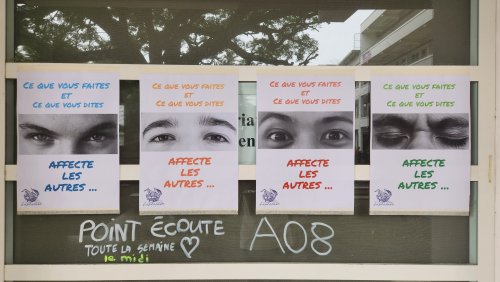 CE QUE VOUS FAITES
ET
CE QUE VOUS DITES
AFFECTE
LES
AUTRES ...
CE QUE VOUS FAITES
ET
CE QUE VOUS DITES
AFFECTE
LES
AUTRES ...
CE QUE VOUS FAITES
ET
CE QUE VOUS DITES
AFFECTE
LES
AUTRES ...
CE QUE VOUS FAITES
ET
CE QUE VOUS DITES
AFFECTE
LES
AUTRES ...
POINT ÉCOUTE A08
TOUTE LA SEMAINE
le midi